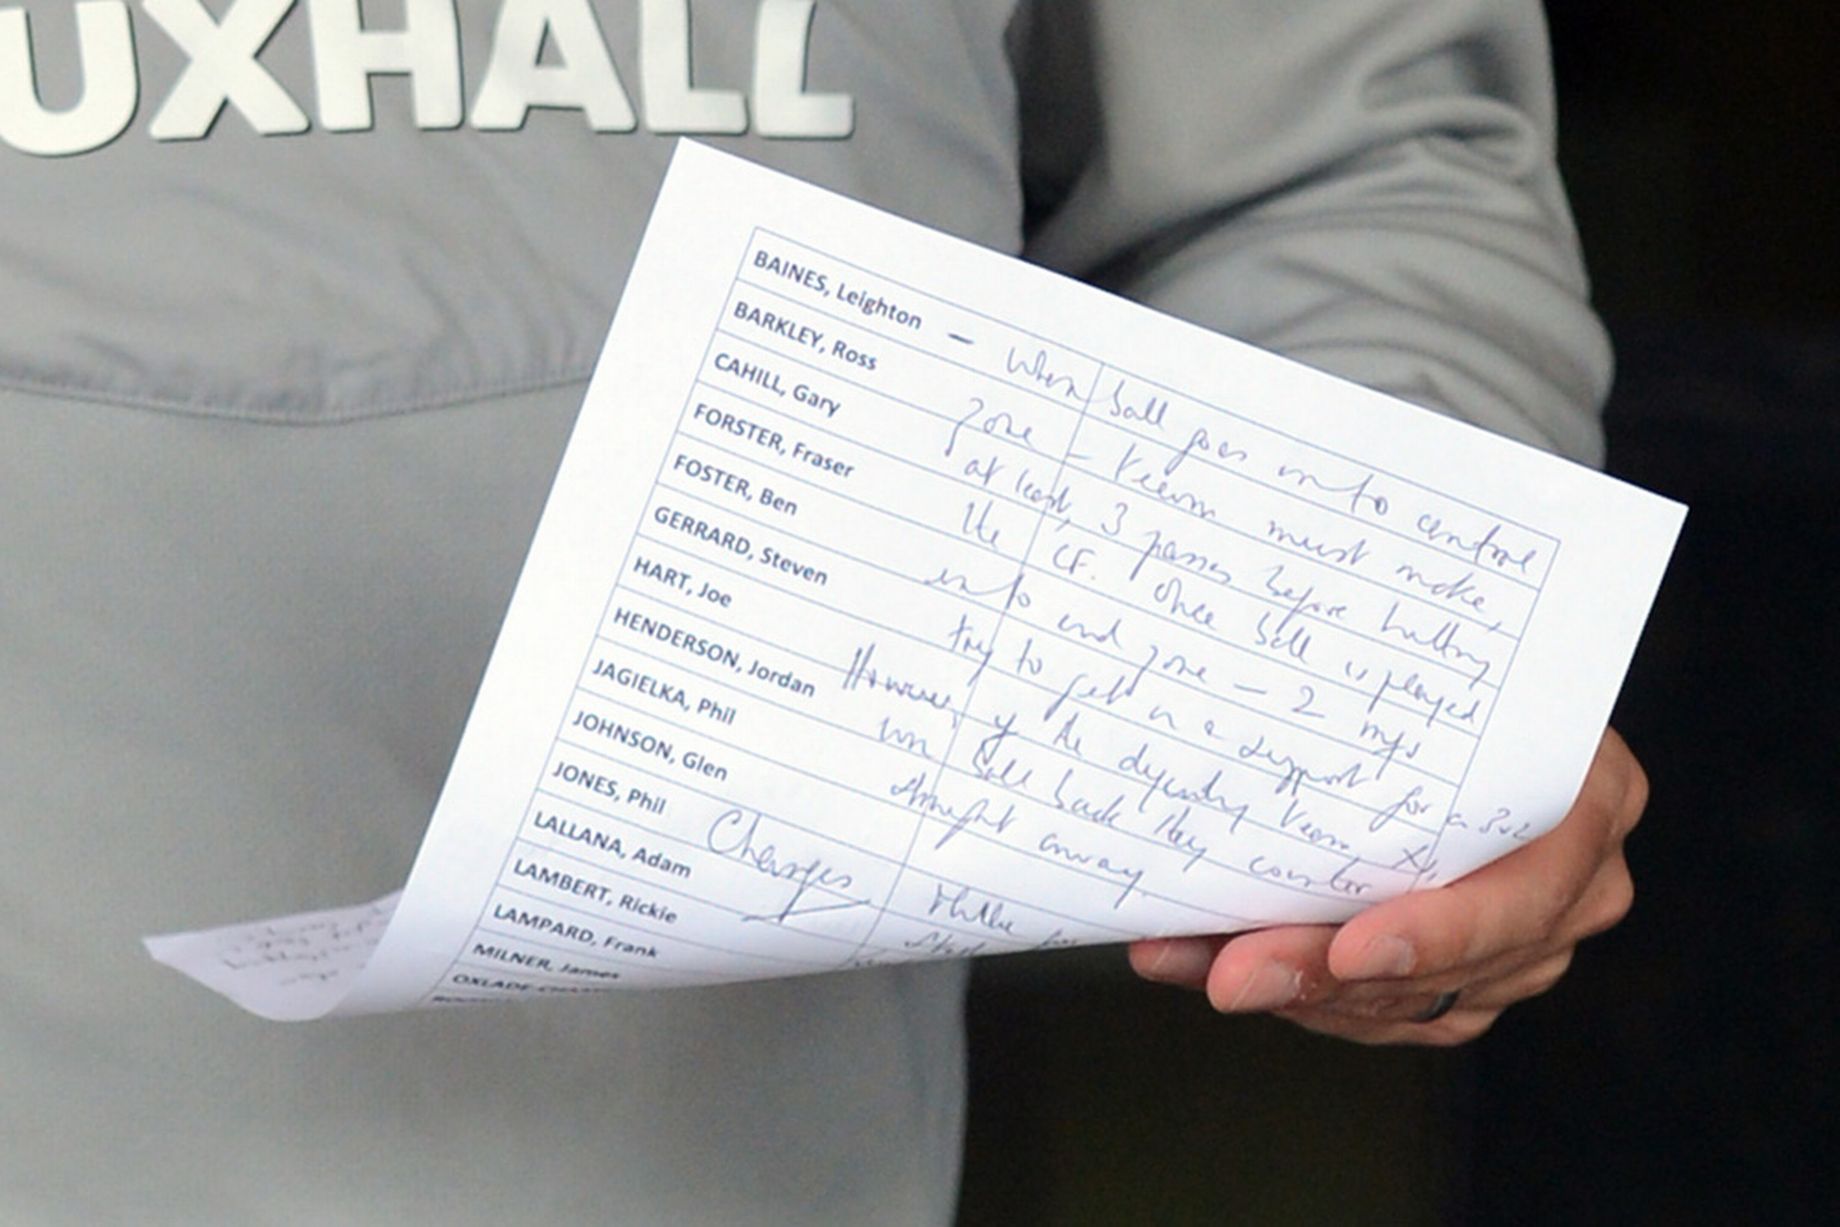 UXHALL
BAINES, Leighton
BARKLEY, Ross
CAHILL, Gary
FORSTER, Fraser
FOSTER, Ben
GERRARD, Steven
HART, Joe
HENDERSON, Jordan
JAGIELKA, Phil
JOHNSON, Glen
JONES, Phil
LALLANA, Adam
LAMBERT, Rickie
LAMPARD, Frank
MILNER, James
– When ball goes into central
zone – team must make
at least 3 passes before hitting
the CF. Once ball is played
into end zone – 2 mf's
try to get in a support for a 3v2
However, if the defending team
win ball back they counter
straight away
Changes